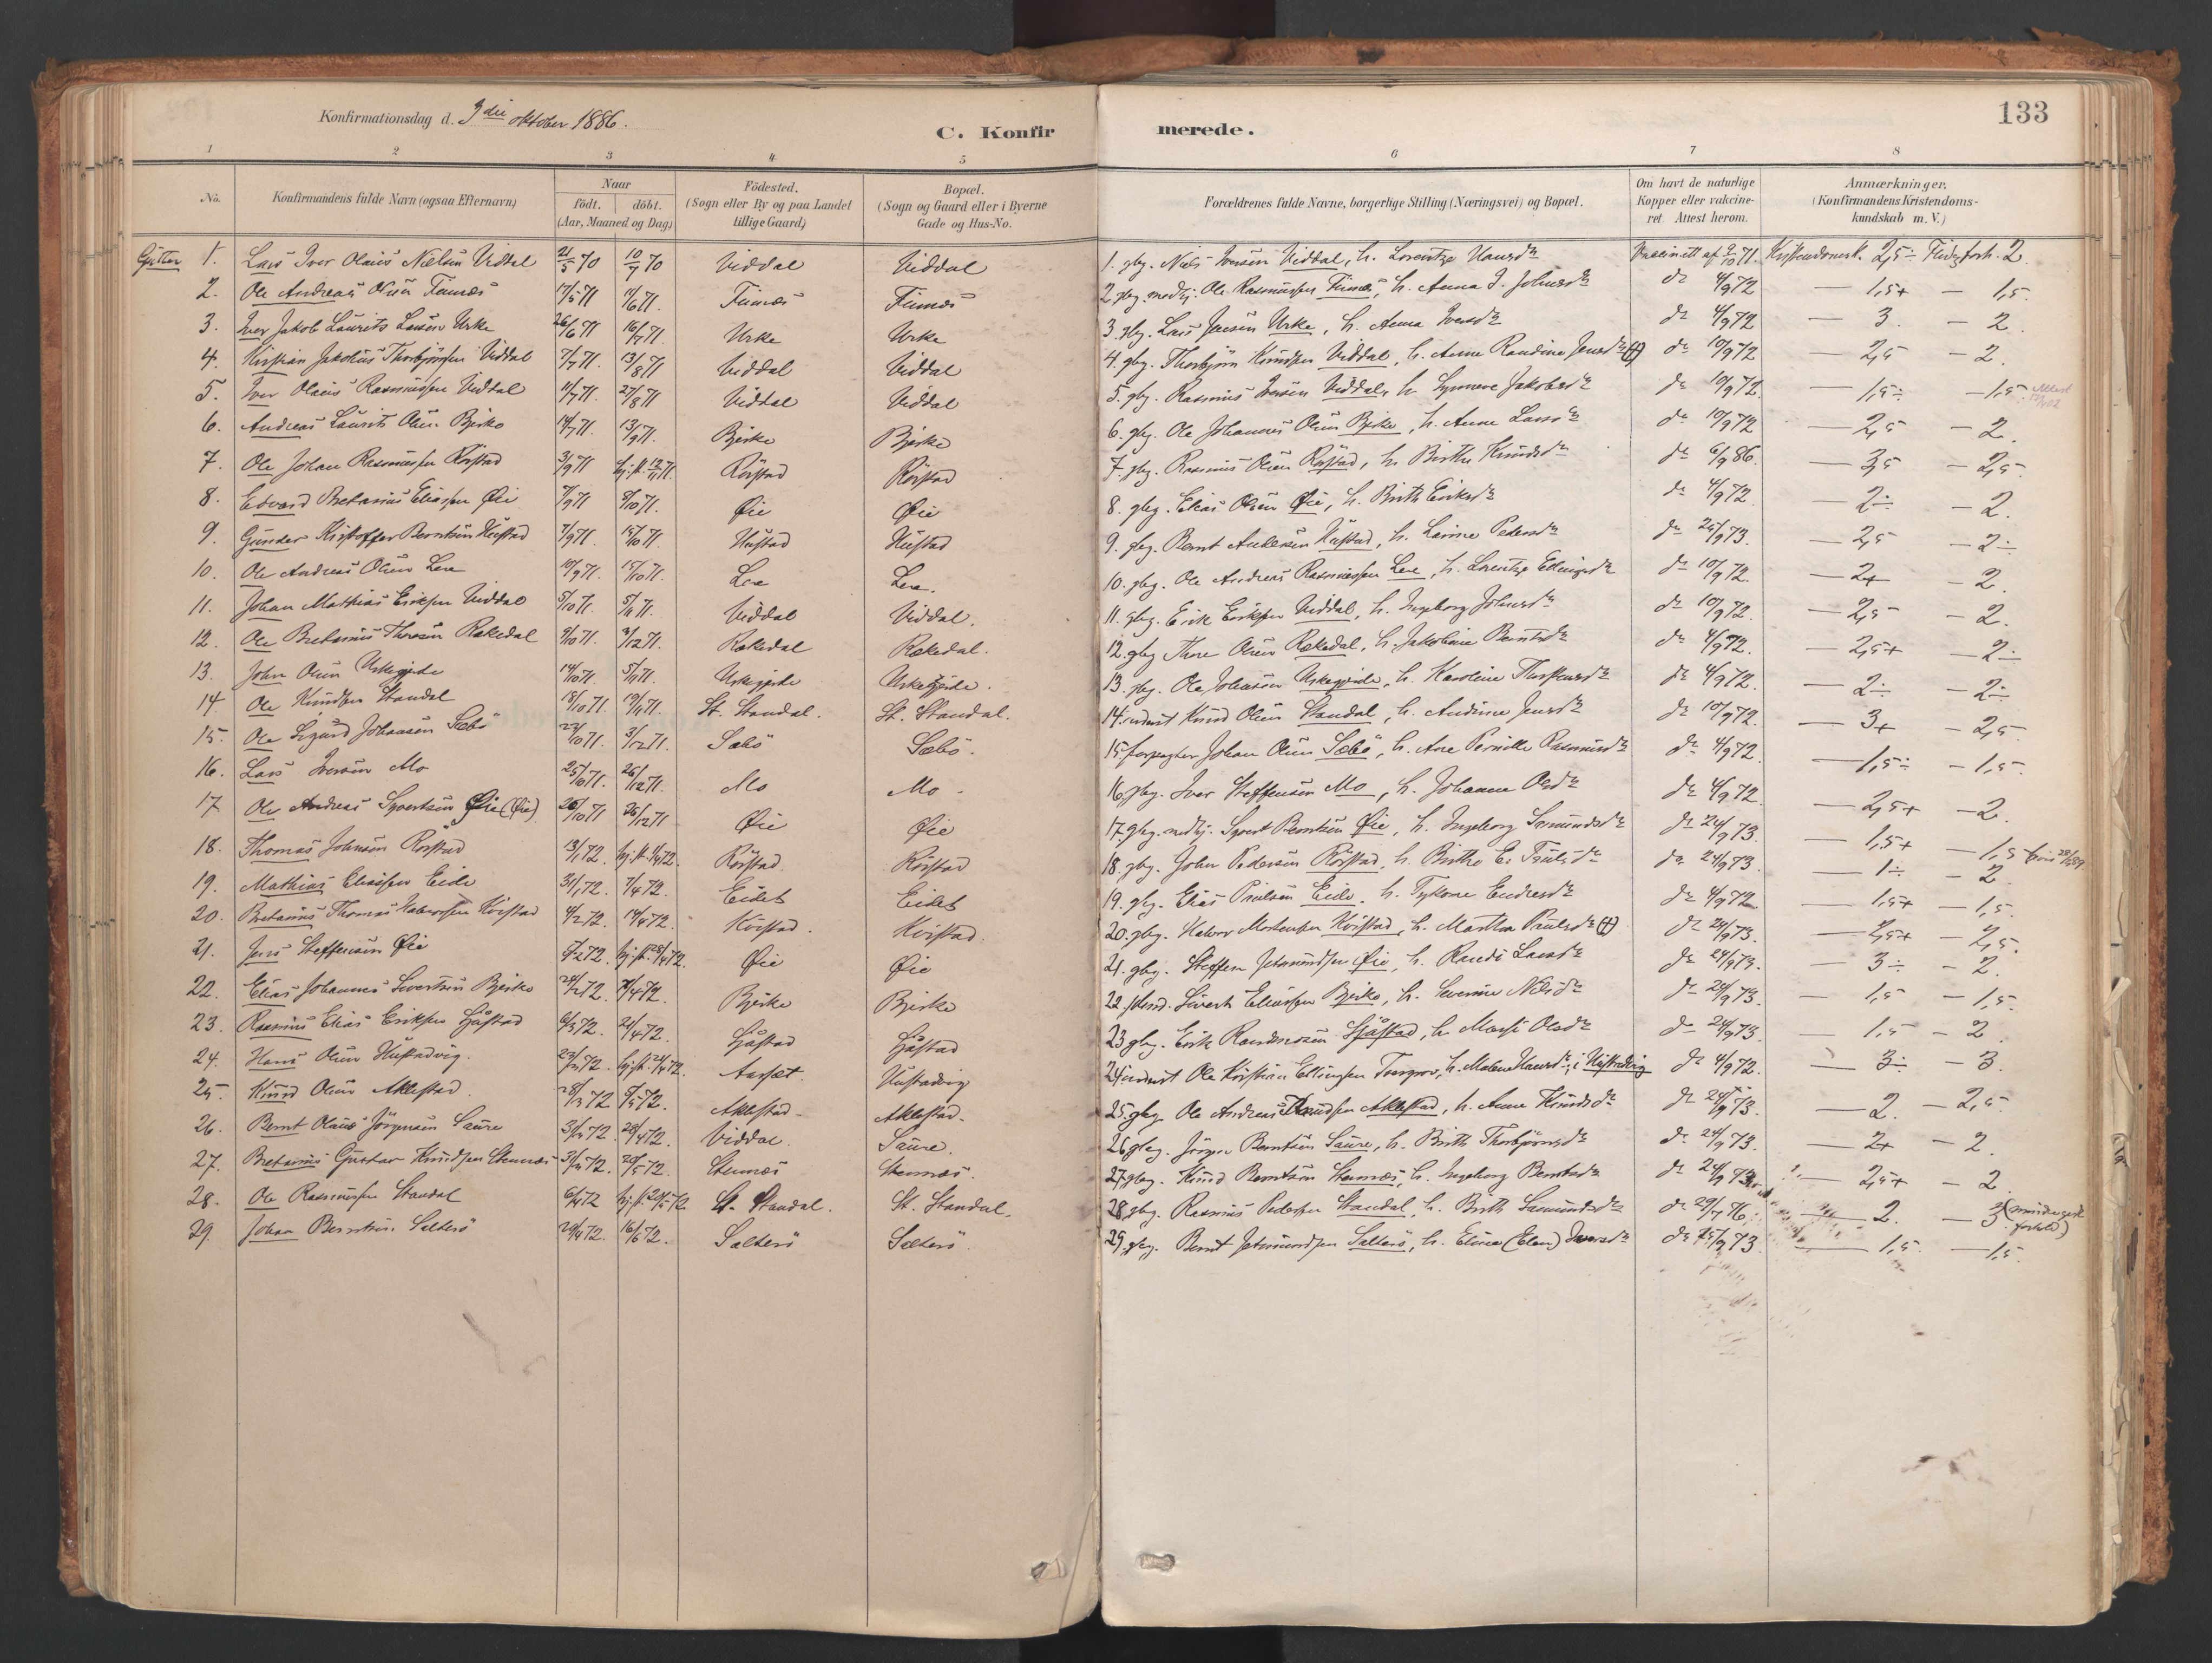 Konfirmationsdag d. 3die oktober 1886.
C. Konfirmerede.
133
1 2 3 4 5 6 7 8
No.
Konfirmandens fulde Navn (ogsaa Efternavn)
Naar
födt. döbt.
(Aar, Maaned og Dag)
Födested.
(Sogn eller By og paa Landet
tillige Gaard)
Bopæl.
(Sogn og Gaard eller i Byerne
Gade og Hus-No.
Forældrenes fulde Navne, borgerlige Stilling (Næringsvei) og Bopæl.
Om havt de naturlige
Kopper eller vakcine-
ret. Attest herom.
Anmærkninger.
(Konfirmandens Kristendoms-
kundskab m. V.)
Gutter 1. Lars Iver Olaus Nielsen Viddal 21/5 70 10/7 70 Viddal Viddal 1. gbg. Niels Iversen Viddal, h. Lorentze Hansdr Vaccinett af 9/10 71. Kristendomsk. 2,5 ÷ Flid, forh. 2.
2. Ole Andreas Olsen Finnæs 17/5 71 11/6 71. Finnæs Finnæs 2. gbg. medhj. Ole Rasmussen Finnæs, h. Anna J. Johnsdr do 4/9 72 — 1,5+ — 1,5.
3. Iver Jakob Laurits Larsen Urke 26/6 71 16/7 71. Urke Urke 3. gbg. Lars Jensen Urke, h. Anna Iversdr do 4/9 72 — 3. — 2.
4. Kristian Jakobus Thorbjørnsen Viddal 7/7 71. 13/8 71 Viddal Viddal 4. gbg. Thorbjørn Knudsen Viddal, h. Anne Randine Jensdr (†) do 10/9 72 — 2,5 — 2.
5. Iver Olaus Rasmussen Viddal 11/7 71. 27/8 71 Viddal Viddal 5. gbg. Rasmus Iversen Viddal, h. Synneve Jakobsdr do 10/9 72. — 1,5 ÷ — 1,5.
6. Andreas Laurits Olsen Bjerke 14/7 71. 13/9 71. Bjerke Bjerke 6. gbg. Ole Johannes Olsen Bjerke, h. Anne Larsdr do 10/9 72 — 2,5 — 2.
7. Ole Johan Rasmussen Rörstad 3/9 71 hj. st. 12/11 71. Rörstad Rörstad 7. gbg. Rasmus Olsen Rörstad, h. Birthe Knudsdr do 6/9 86. — 3,5 — 2,5.
8. Edvard Bretanus Eliassen Øie 7/9 71 8/10 71. Øie Øie 8. gbg. Elias Olsen Øie, h. Birth Eriksdr do 4/9 72. — 2 ÷ — 2.
9. Gunder Kristoffer Berntsen Hustad 7/9 71. 15/10 71. Hustad Hustad 9. gbg. Bernt Andersen Hustad, h. Larine Pedersdr do 25/9 73. — 2,5 — 2 ÷
10. Ole Andreas Olsen Lee 10/9 71. 15/10 71. Lee Lee. 10. gbg. Ole Andreas Rasmussen Lee, h. Lorentze Ellingsdr do 10/9 72. — 2+ — 2.
11. Johan Mathias Eriksen Viddal 5/10 71. 5/11 71. Viddal Viddal. 11. gbg. Erik Eriksen Viddal, h. Ingeborg Johnsdr do 10/9 72. — 2,5 — 2.
12. Ole Bretanus Thoresen Rækedal 9/10 71. 3/12 71. Rækedal Rækedal. 12. gbg. Thore Olsen Rækedal, h. Jakobine Berntsdr do 4/9 72. — 2,5+ — 2 ÷
13. John Olsen Urkegjerde 14/10 71. 5/11 71. Urkegjerde Urkegjerde. 13. gbg. Ole Johansen Urkegjerde, h. Karoline Thorstensdr do 4/9 72. — 2 ÷ — 2 ÷
14 Ole Knudsen Standal 18/10 71. 19/11 71. St. Standal. St. Standal. 14. inderst Knud Olsen Standal, h. Andrine Jensdr do 10/9 72. — 3+ — 2,5.
15. Ole Sigurd Johansen Sæbö 22/10 71. 3/12 71. Sæbö Sæbö. 15. forpagter Johan Olsen Sæbö, h. Ane Pernille Rasmusdr do 4/9 72. — 1,5 ÷ — 1,5.
16. Lars Iversen Mo 25/10 71. 26/12 71. Mo Mo. 16. gbg. Iver Steffensen Mo, h. Johanna Olsdr do 4/9 72. — 2,5+ — 2.
17 Ole Andreas Syvertsen Øie (Øie) 26/10 71 26/12 71 Øie Øie 17. gbg. medhj. Syvert Berntsen Øie, h. Ingeborg Samundsdr do 24/9 73. — 1,5+ — 1,5
18. Thomas Johnsen Rörstad 13/1 72. hj. st. 1/4 72. Rörstad. Rörstad 18. gbg. John Pedersen Rörstad, h. Birthe E. Trulsdr do 24/9 73. — 1 ÷ — 2.
19. Mathias Eliassen Eide 31/1 72. 7/4 72. Eidet Eidet 19. gbg. Elias Poulsen Eide, h. Sykone Endresdr do 4/9 72. — 1,5+ — 1,5.
20. Bretanus Thomas Halvorsen Kvistad 4/2 72. 14/4 72. Kvistad. Kvistad. 20. gbg. Halvor Mortensen Kvistad, h. Martha Paulsdr (†) do 24/9 73. — 2,5+ — 2,5.
21. Jens Steffensen Øie 5/2 72. hj. st. 28/4 72. Øie Øie 21. gbg. Steffen Jetmundsen Øie, h. Randi Larsdr do 24/9 73. — 3 ÷ — 2.
22. Elias Johannes Sivertsen Bjerke Bjerke Bjerke 22. Sivert Eliassen Bjerke, h. Severine Nilsdr do 24/9 73. — 1,5 — 1,5.
23. Rasmus Elias Eriksen Gjåstad 6/3 72. 21/4 72. Gjåstad Gjåstad 23 gbg. Erik Rasmussen Gjåstad, h. Marthe Olsdr do 24/9 73. — 1,5 — 2.
24. Hans Olsen Hustadvig. 23/3 72. hj. st. 21/4 72. Aarset. Hustadvig 24. inderst Ole Kristian Ellingsen, h. Malene Hansdr, i Hustadvig do 4/9 72. — 3 ÷ — 3.
25. Knud Olsen Aklestad. 28/3 72 5/5 72. Aklestad. Aklestad. 25. gbg. Ole Andreas Knudsen Aklestad, h. Anne Knudsdr do 24/9 73. — 2. — 2,5.
26. Bernt Olaus Jörgensen Saure 31/3 72. 28/4 72. Viddal. Saure. 26. gbg. Jörgen Berntsen Saure, h. Birth Thorbjørnsdr do 24/9 73. — 2+ — 2.
27. Bretanus Gustav Knudsen Stennæs 31/3 72. 20/5 72. Stennæs Stennæs. 27. gbg. Knud Berntsen Stennæs, h. Ingeborg Berntsdr do 24/9 73. — 2,5+ — 2.
28. Ole Rasmussen Standal 6/4 72 hj. st. 20/5 72. St. Standal. St. Standal. 28. gbg. Rasmus Pedersen Standal, h. Birth Samundsdr do 29/7 76. — 2. — 3 (mindre godt forhold)
29. Johan Berntsen Sætterö 29/4 72. 16/6 72. Sætterö Sætterö. 29. gbg. Bernt Jetmundsen Sætterö, h. Elina (Elen) Iversdr do 25/9 73. — 1,5. — 1,5.